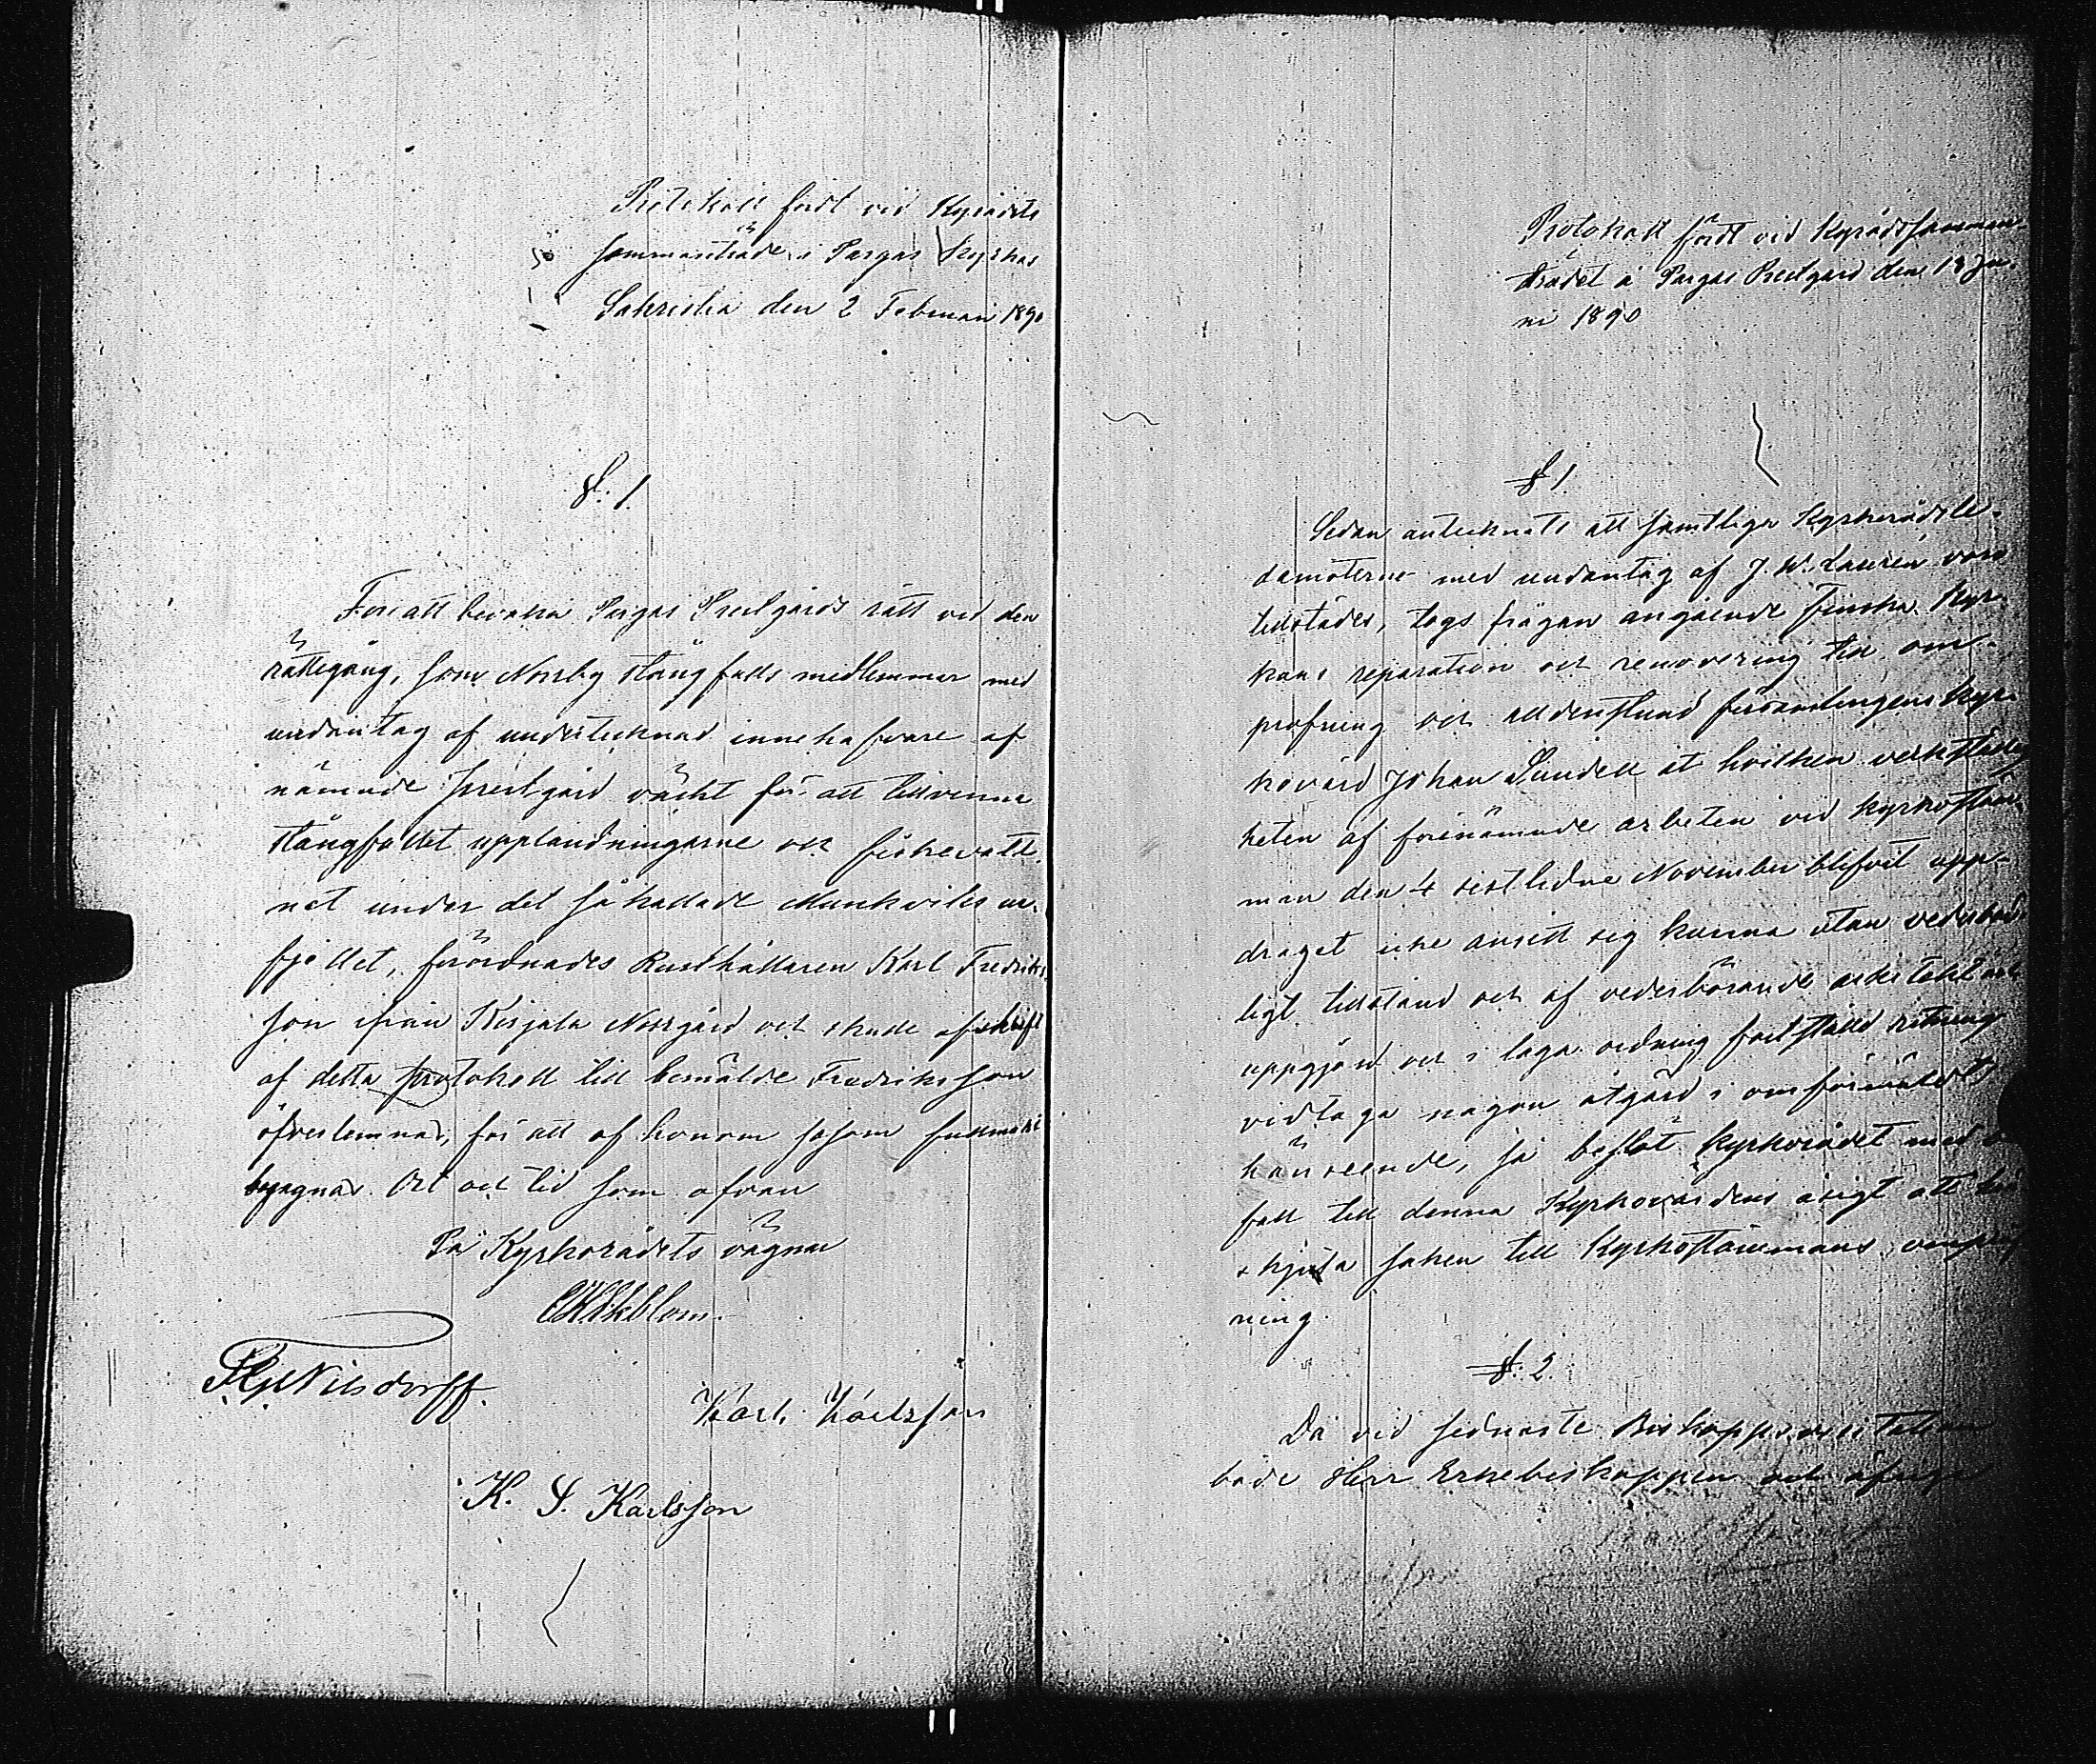 Protokoll fördt vid Kyrådets
sammanträde i Pargas Kyrkas
Sakristia den 2 Februari 1890
§. 1.
För att bevaka Pargas Prestgårds rätt vid den
rättegång, som Norrby stångfalls medlemmar med
undantag af undertecknad innehafvare af
nämnde prestgård väckt för att tillvinna
stångfallet upplandningarne och fiskevatt-
net under det så kallade Munkviks
fjellet, förordnades Rusthållaren Karl Fredriks-
son från Kirjala Norrgård och skulle afskrift
af detta protokoll till bemälde Fredriksson
öfverlemnas, för att af honom såsom fullmakt
begagnas. Ort och tid som ofvan
På Kyrkorådets vägnar
Karl Karlsson
K. S. Karlsson
Protokoll fördt vid Kyrådssamman-
trädet å Pargas Prestgård den 13 Ju-
ni 1890
§ 1.
Sedan antecknats att samtliga Kyrkorådsle-
damöterne med undantag af J. W. Laurén voro
tillstädes, togs frågan angående Finska Kyr-
kans reparation och renovering till om-
pröfning och alldenstund församlingens Kyr-
kovärd Johan Sundell åt hvilken verkställig-
heten af förenämnde arbeten vid kyrkostäm-
man den 4 sistlidne November blifvit upp-
draget icke ansett sig kunna utan vederbör-
ligt tillstånd och af vederbörande arkitekt
uppgjord och i laga ordning fastställd ritning
vidtaga någon åtgärd i omförmäldt
hänseende, så beslöt kyrkorådet med bi-
fall till denna Kyrkovärdens åsigt att hän-
skjuta saken till Kyrkostämmans ompröf-
ning.
§. 2.
Då vid sednaste Biskopsvisitation
både Herr Erkebiskoppen och öfrige